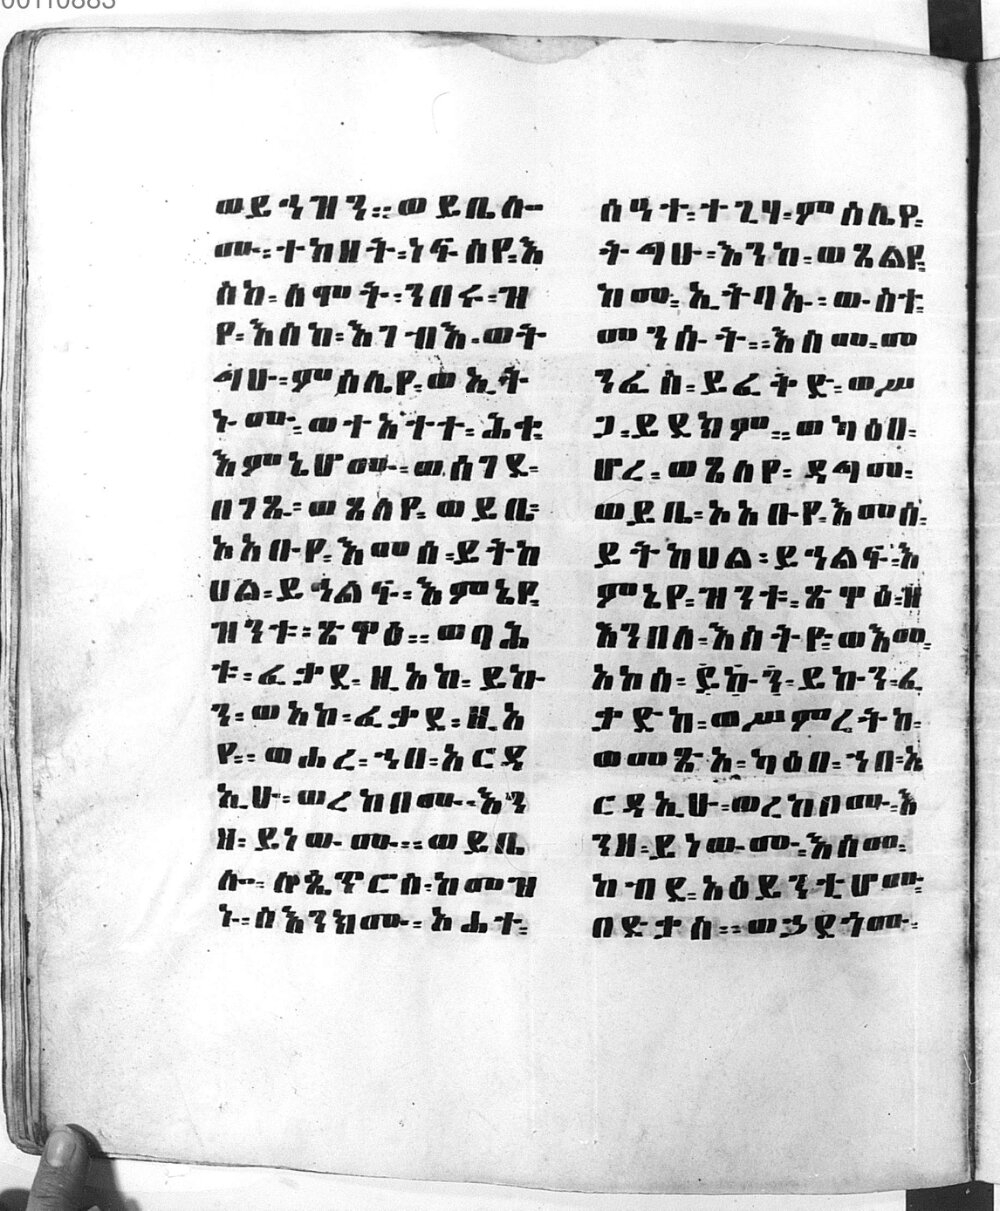 00110883
ወይኅዝን። ወይቤሎ
ሙ፡ ተከዘት፡ ነፍስየ፡ እ
ስከ፡ ለሞት፡ ንበሩ፡ ዝ
የ፡ እስከ፡ እገብእ፡ ወት
ግሁ፡ ምስሌየ፡ ወኢት
ኑሙ፡ ወተአተተ፡ ሕቀ
እምኔሆሙ፡ ወሰገደ፡
በገጹ፡ ወጸለየ፡ ወይቤ፡
አአቡየ፡ እመሰ፡ ይትከ
ሀል፡ ይኅልፍ፡ እምኔየ
ዝንቱ፡ ጽዋዕ። ወባሕ
ቱ፡ ፈቃደ፡ ዚአከ፡ ይኩ
ን፡ ወአኮ፡ ፈቃደ፡ ዚአ
የ። ወሖረ፡ ኀበ፡ አርዳ
ኢሁ፡ ወረከቦሙ፡ እን
ዘ፡ ይነውሙ። ወይቤ
ሎ፡ ለጴጥሮስ፡ ከመዝ
ኑ፡ ስእንክሙ፡ አሐተ፡
ሰዓተ፡ ተጊሃ፡ ምስሌየ፡
ትግሁ፡ እንከ፡ ወጸልዩ
ከመ፡ ኢትባኡ፡ ውስተ፡
መንሱት። እስመ፡ መ
ንፈስ፡ ይፈትድ፡ ወሥ
ጋ፡ ይደክም። ወካዕበ፡
ሆረ፡ ወጸለየ፡ ዳግመ፡
ወይቤ፡ አአቡየ፡ እመሰ፡
ይትከሀል፡ ይኅልፍ፡ እ
ምኔየ፡ ዝንቱ፡ ጽዋዕ፡ ዘ
እንበለ፡ እስትዮ፡ ወእመ
አከሰ፡ ይኩን፡ ይኩን፡ ፈ
ቃድከ፡ ወሥምረትከ፡
ወመጽአ፡ ካዕበ፡ ኀበ፡ አ
ርዳኢሁ፡ ወረከቦሙ፡ እ
ንዘ፡ ይነውሙ፡ እስመ፡
ከብደ፡ አዕይንቲሆሙ፡
በድቃስ። ወኃደጎሙ፡